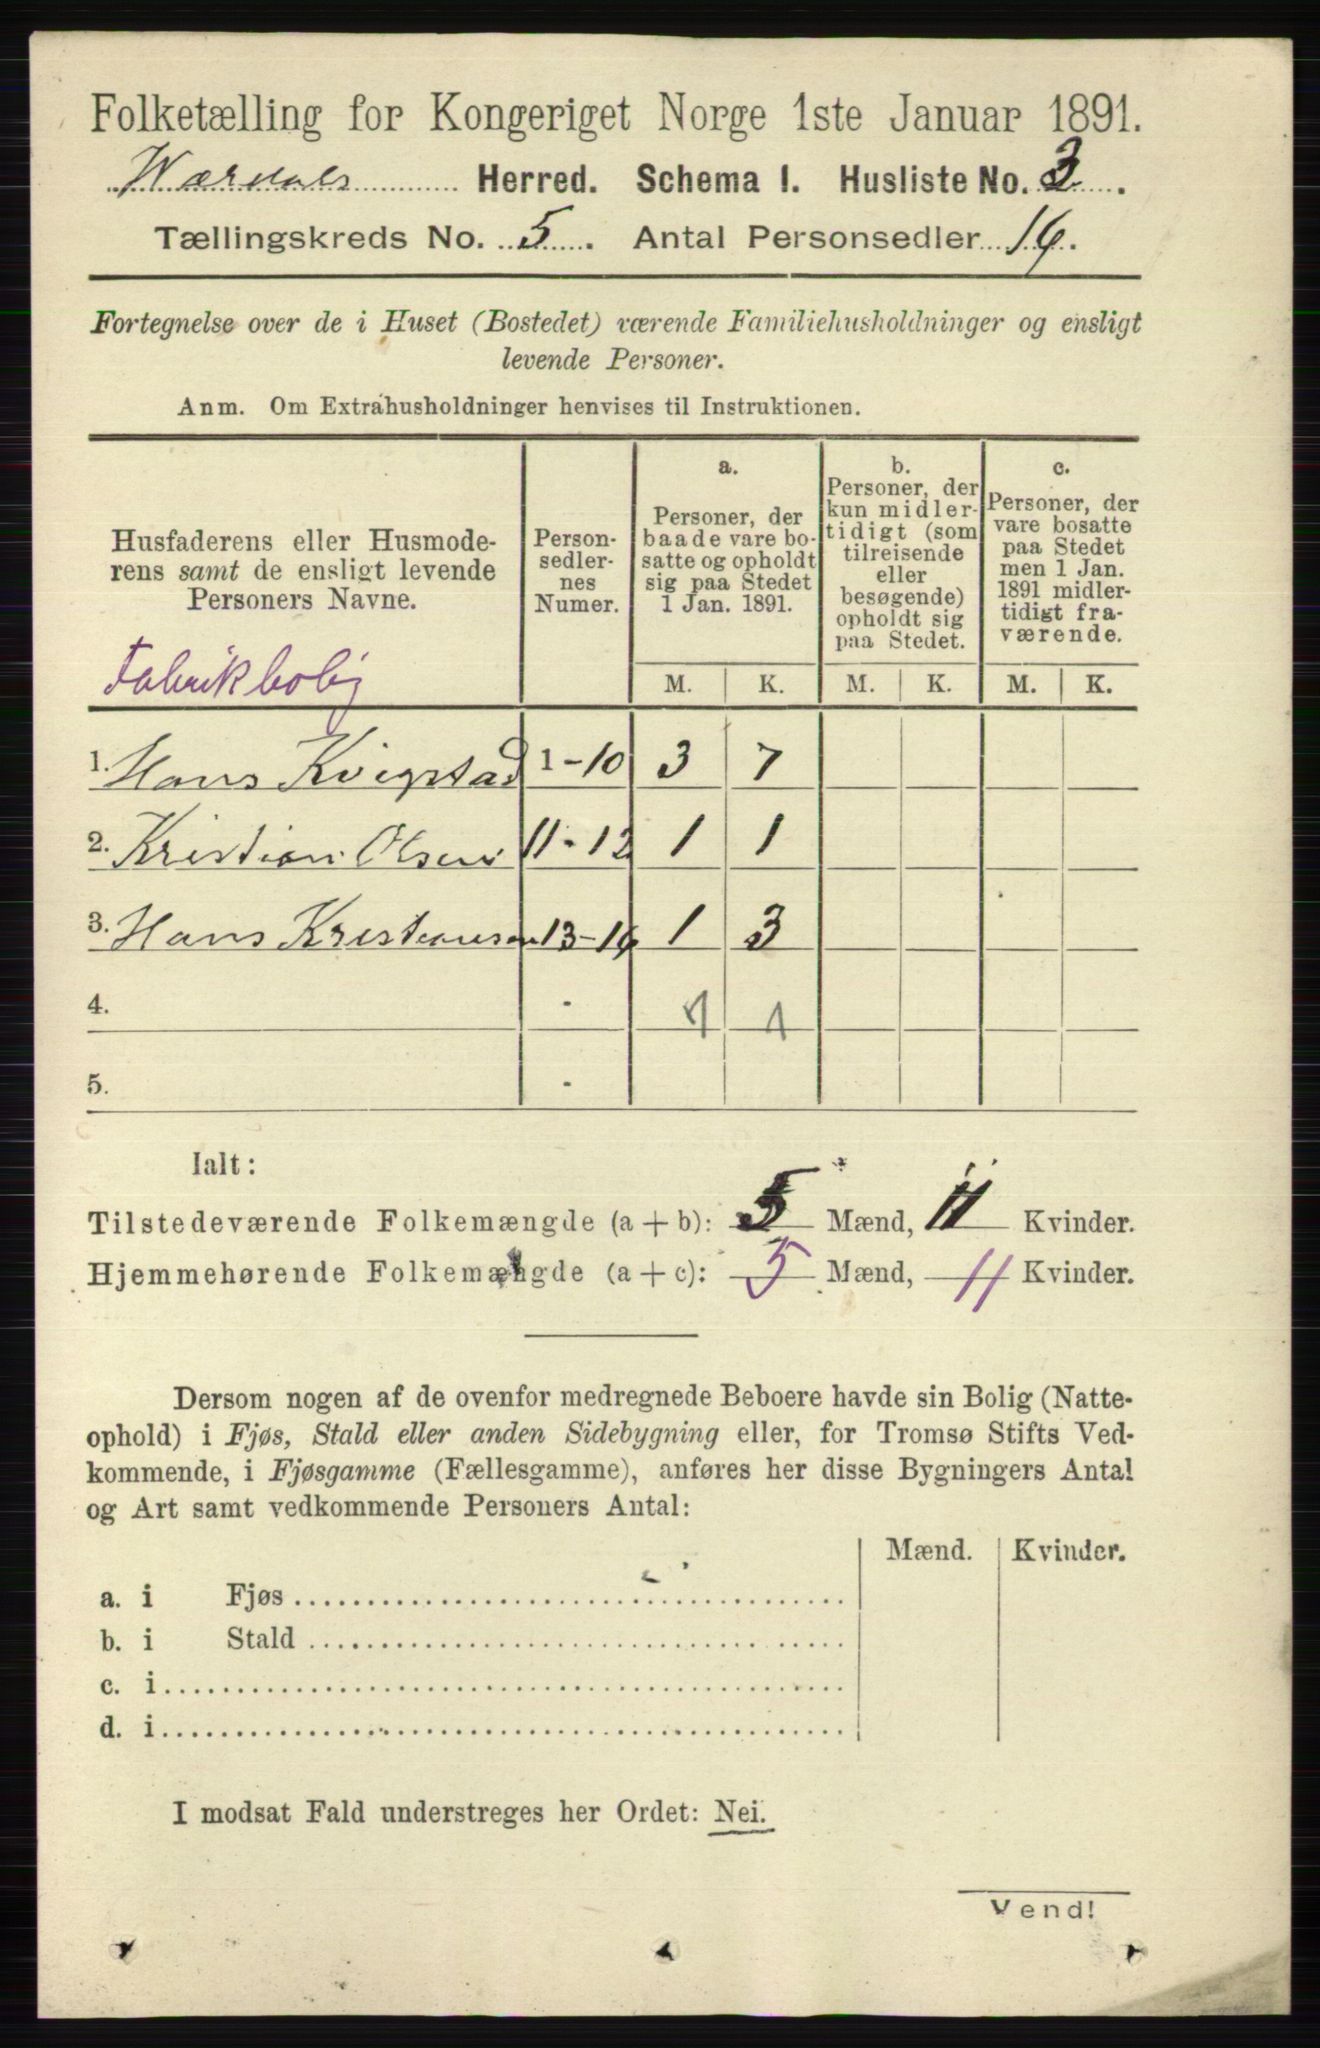 Folketælling for Kongeriget Norge 1ste Januar 1891.
Værdals Herred. Schema I. Husliste No. 3.
Tællingskreds No. 5. Antal Personsedler 16.
Fortegnelse over de i Huset (Bostedet) værende Familiehusholdninger og ensligt
levende Personer.
Anm. Om Extrahusholdninger henvises til Instruktionen.
Husfaderens eller Husmode-
rens samt de ensligt levende
Personers Navne.
Fabrikbolig
Person-
sedler-
nes
Numer.
a.
Personer, der
baade vare bo-
satte og opholdt
sig paa Stedet
1 Jan. 1891.
b.
Personer, der
kun midler-
tidigt (som
tilreisende
eller
besøgende)
opholdt sig
paa Stedet.
c.
Personer, der
vare bosatte
paa Stedet
men 1 Jan.
1891 midler-
tidigt fra-
værende.
M. K. M. K. M. K.
1. Hans Kvigstad 1-10 3 7
2. Kristian Olsen 11-12 1 1
3. Hans Kristiansen 13-16 1 3
4. -
5. -
Ialt:
Tilstedeværende Folkemængde (a + b): 5 Mænd, 11 Kvinder.
Hjemmehørende Folkemængde (a + c): 5 Mænd, 11 Kvinder.
Dersom nogen af de ovenfor medregnede Beboere havde sin Bolig (Natte-
ophold) i Fjøs, Stald eller anden Sidebygning eller, for Tromsø Stifts Ved-
kommende, i Fjøsgamme (Fællesgamme), anføres her disse Bygningers Antal
og Art samt vedkommende Personers Antal:
Mænd. Kvinder.
a. i Fjøs
b. i Stald
c. i
d. i
I modsat Fald understreges her Ordet: Nei.
Vend!